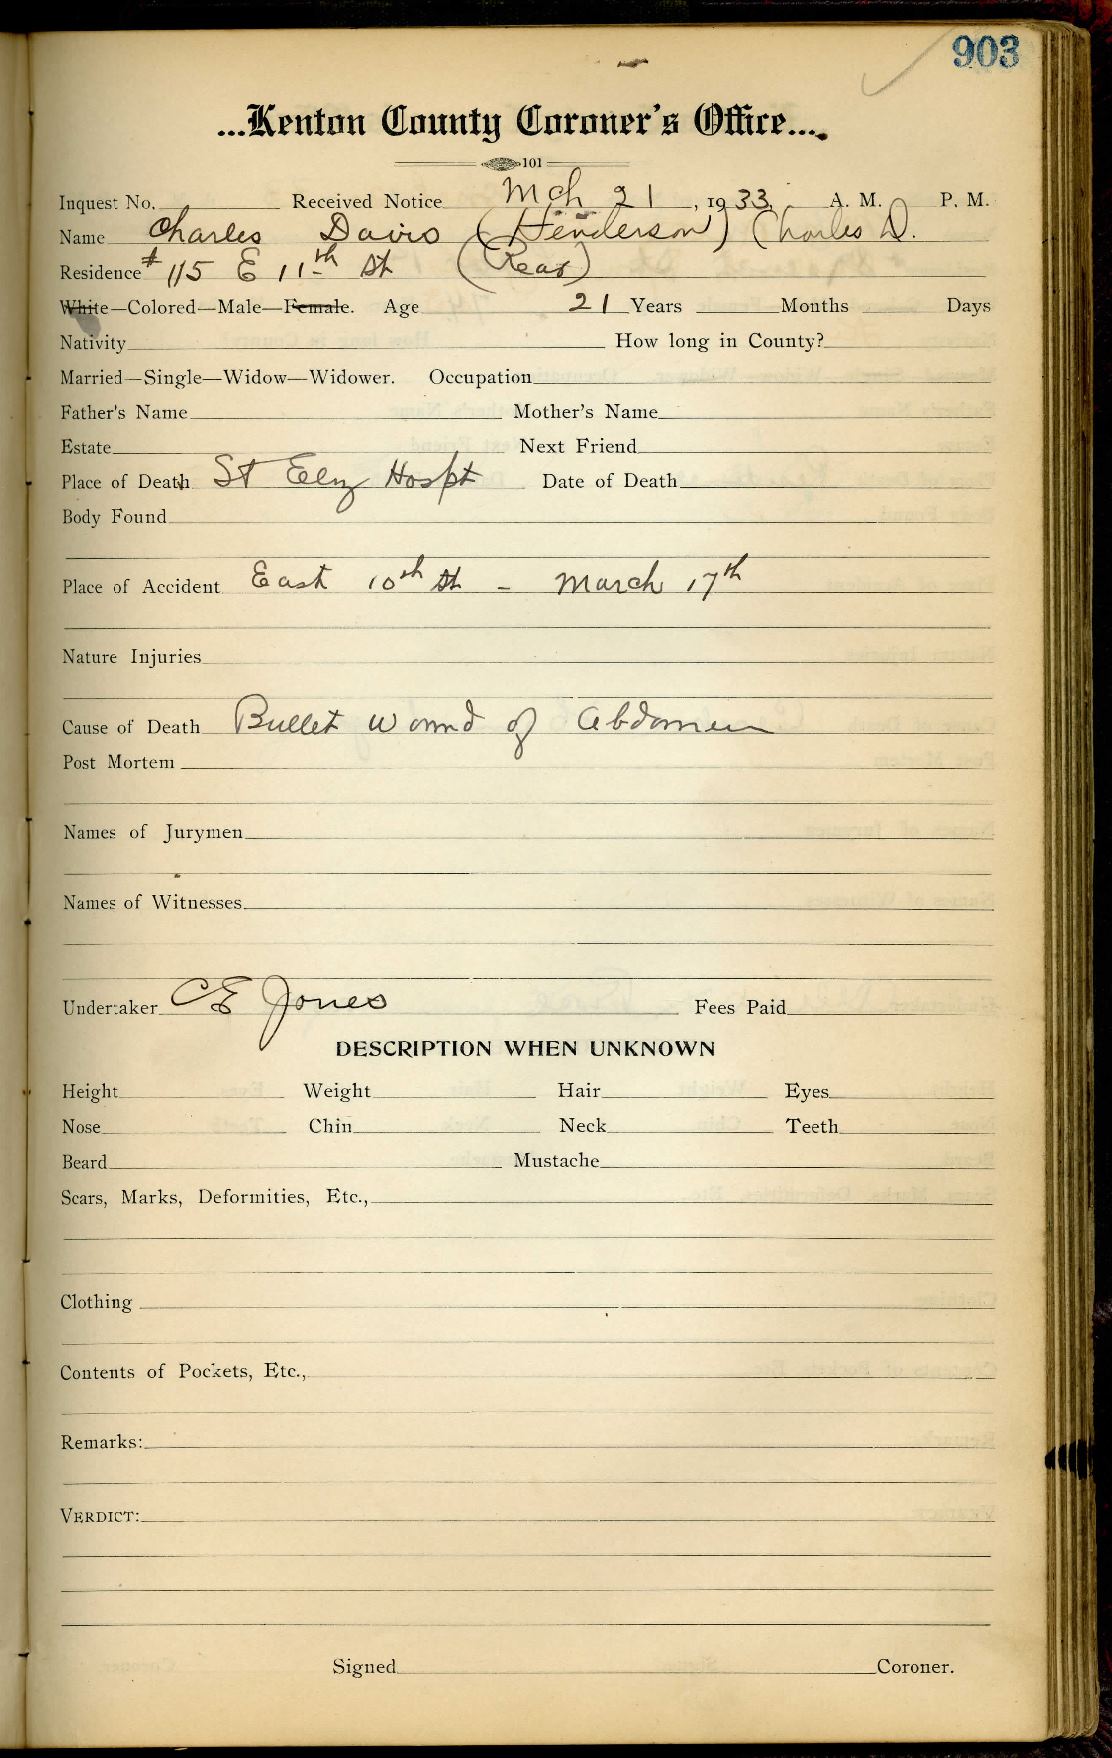 903
...Kenton County Coroner's Office....
101
Inquest No. Received Notice Mch 21, 1933. A. M. P. M.
Name Charles Davis (Henderson) (Charles D.
Residence # 115 E 11th St (Rear)
White—Colored—Male—Female. Age 21 Years Months Days
Nativity How long in County?
Married—Single—Widow—Widower. Occupation
Father's Name Mother's Name
Estate Next Friend
Place of Death St Eliz Hospt Date of Death
Body Found
Place of Accident East 10th St - March 17th
Nature Injuries
Cause of Death Bullet wound of Abdomen
Post Mortem
Names of Jurymen
Names of Witnesses
Undertaker C E Jones Fees Paid
DESCRIPTION WHEN UNKNOWN
Height Weight Hair Eyes
Nose Chin Neck Teeth
Beard Mustache
Scars, Marks, Deformities, Etc.,
Clothing
Contents of Pockets, Etc.,
Remarks:
VERDICT:
Signed Coroner.